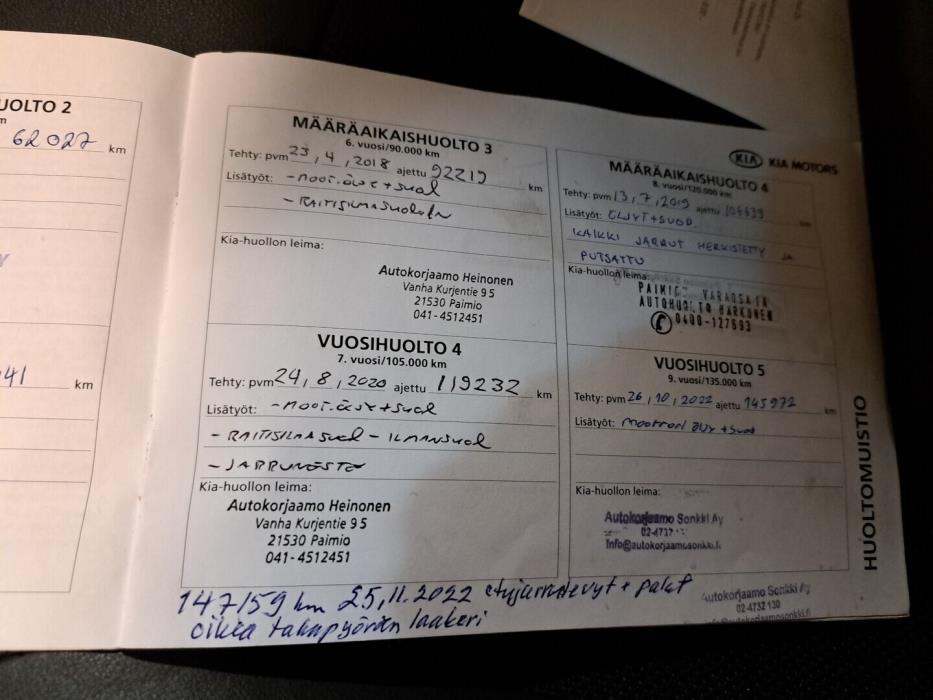 UOLTO 2
62027 km
41 km
MÄÄRÄAIKAISHUOLTO 3
6. vuosi/90.000 km
Tehty: pvm 23, 4, 2018 ajettu 92219 km
Lisätyöt: - MOOT.ÖLJY + SUOD
- RAITISILMASUODATIN
Kia-huollon leima:
Autokorjaamo Heinonen
Vanha Kurjentie 9 5
21530 Paimio
041-4512451
VUOSIHUOLTO 4
7. vuosi/105.000 km
Tehty: pvm 24, 8, 2020 ajettu 119232 km
Lisätyöt: - MOOT.ÖLJY + SUOD
- RAITISILMASUOD - ILMANSUOD
- JARRUNESTE
Kia-huollon leima:
Autokorjaamo Heinonen
Vanha Kurjentie 9 5
21530 Paimio
041-4512451
KIA KIA MOTORS
MÄÄRÄAIKAISHUOLTO 4
8. vuosi/120.000 km
Tehty: pvm 13, 7, 2019 ajettu 106639 km
Lisätyöt: ÖLJYT + SUOD.
KAIKKI JARRUT HERKISTETTY JA
PUTSATTU
Kia-huollon leima:
PAIMION VARAOSA JA
AUTOHUOLTO HARKONEN
0400-127693
VUOSIHUOLTO 5
9. vuosi/135.000 km
Tehty: pvm 26, 10, 2022 ajettu 145972 km
Lisätyöt: moottori öljy + suod
Kia-huollon leima:
Autokorjaamo Sonkki Ay
02-4732
info@autokorjaamosonkki.fi
HUOLTOMUISTIO
147159 km 25,11.2022 etujarrulevyt + palat
oikea takapyörän laakeri
Autokorjaamo Sonkki Ay
02-4732 130